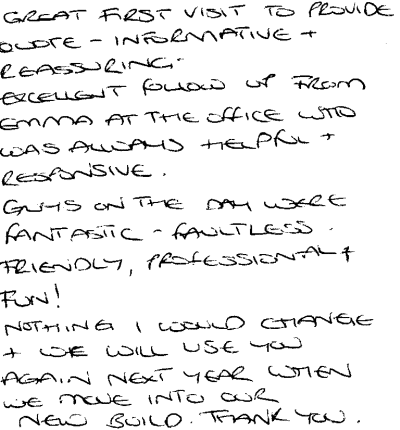 GREAT FIRST VISIT TO PROVIDE
QUOTE - INFORMATIVE +
REASSURING.
EXCELLENT FOLLOW UP FROM
EMMA AT THE OFFICE WHO
WAS ALWAYS HELPFUL +
RESPONSIVE.
GUYS ON THE DAY WERE
FANTASTIC - FAULTLESS.
FRIENDLY, PROFESSIONAL +
FUN!
NOTHING I WOULD CHANGE
+ WE WILL USE YOU
AGAIN NEXT YEAR WHEN
WE MOVE INTO OUR
NEW BUILD. THANK YOU.